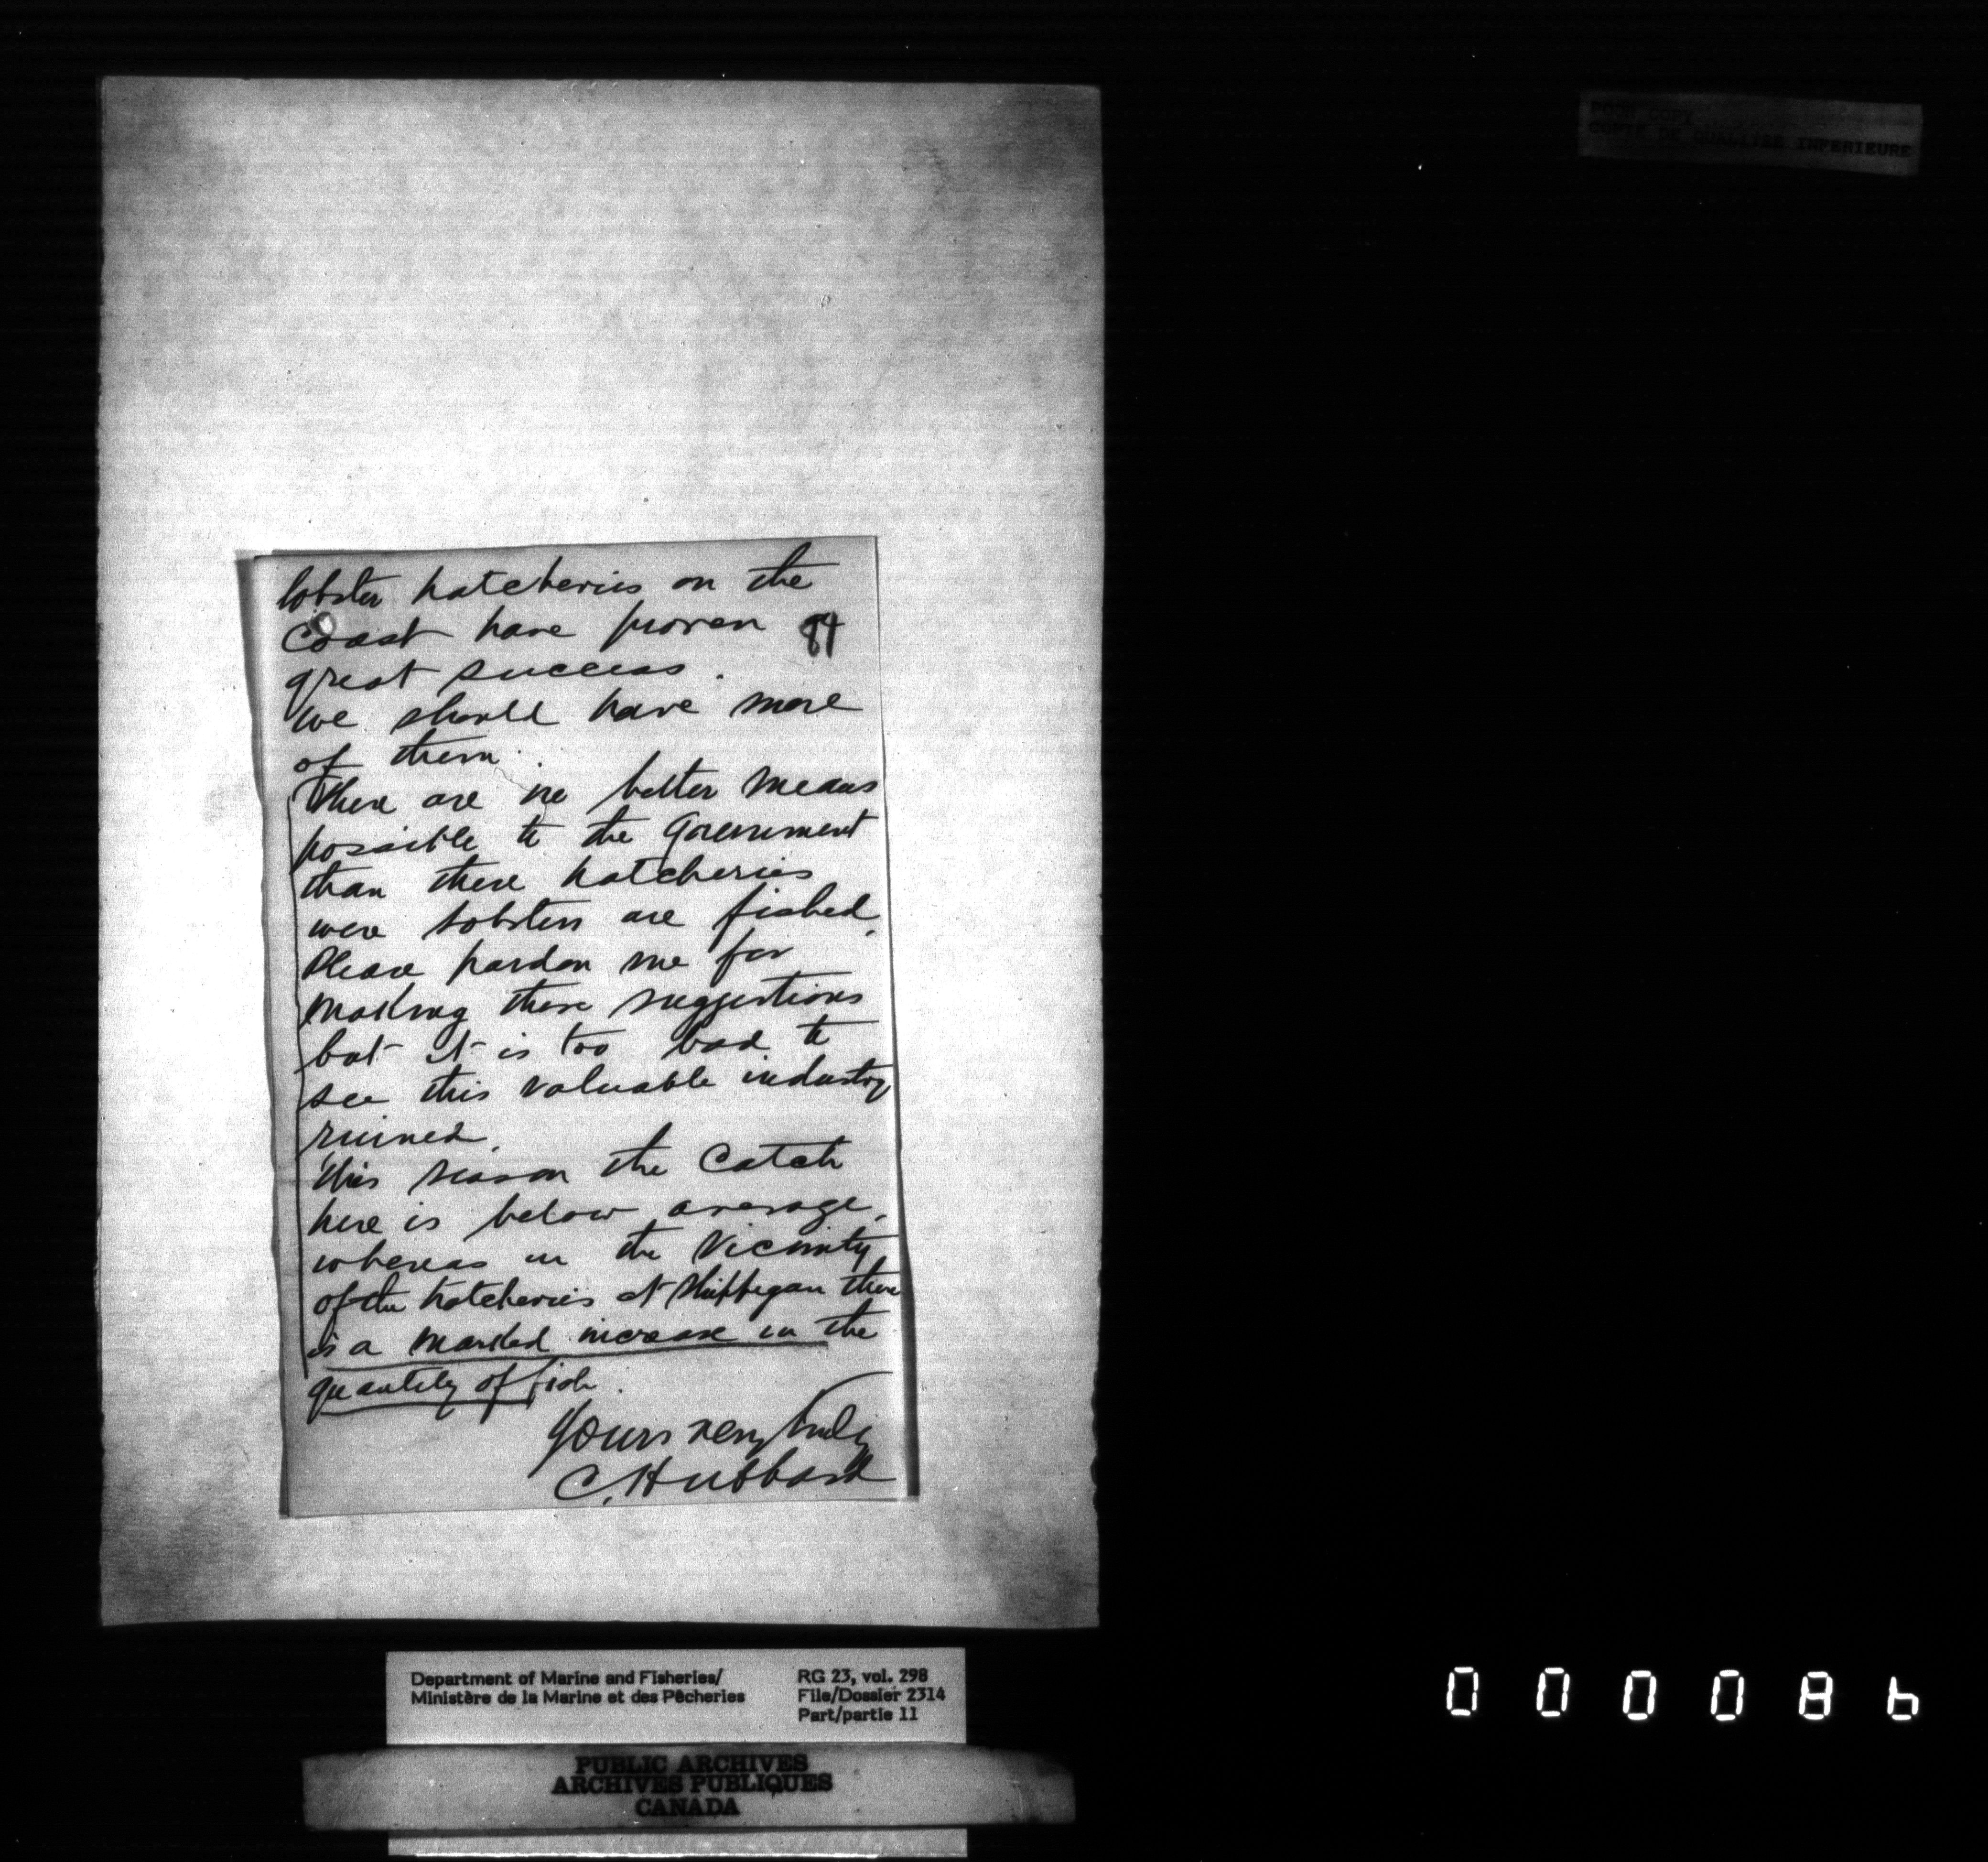 POOR COPY
COPIE DE QUALITEE INFERIEURE
lobster hatcheries on the
Coast have proven
84
great success.
We should have more
of them.
There are no better means
possible to the Government
than these hatcheries
were lobsters are fished.
Please pardon me for
making these suggestions
but it is too bad to
see this valuable industry
ruined.
This season the Catch
here is below average,
whereas in the Vicinity
of the hatcheries at Shippegan there
is a marked increase in the
quantity of fish.
Yours very truly
C. Hubbard
Department of Marine and Fisheries/
Ministère de la Marine et des Pêcheries
RG 23, vol. 298
File/Dossier 2314
Part/partie 11
PUBLIC ARCHIVES
ARCHIVES PUBLIQUES
CANADA
000086